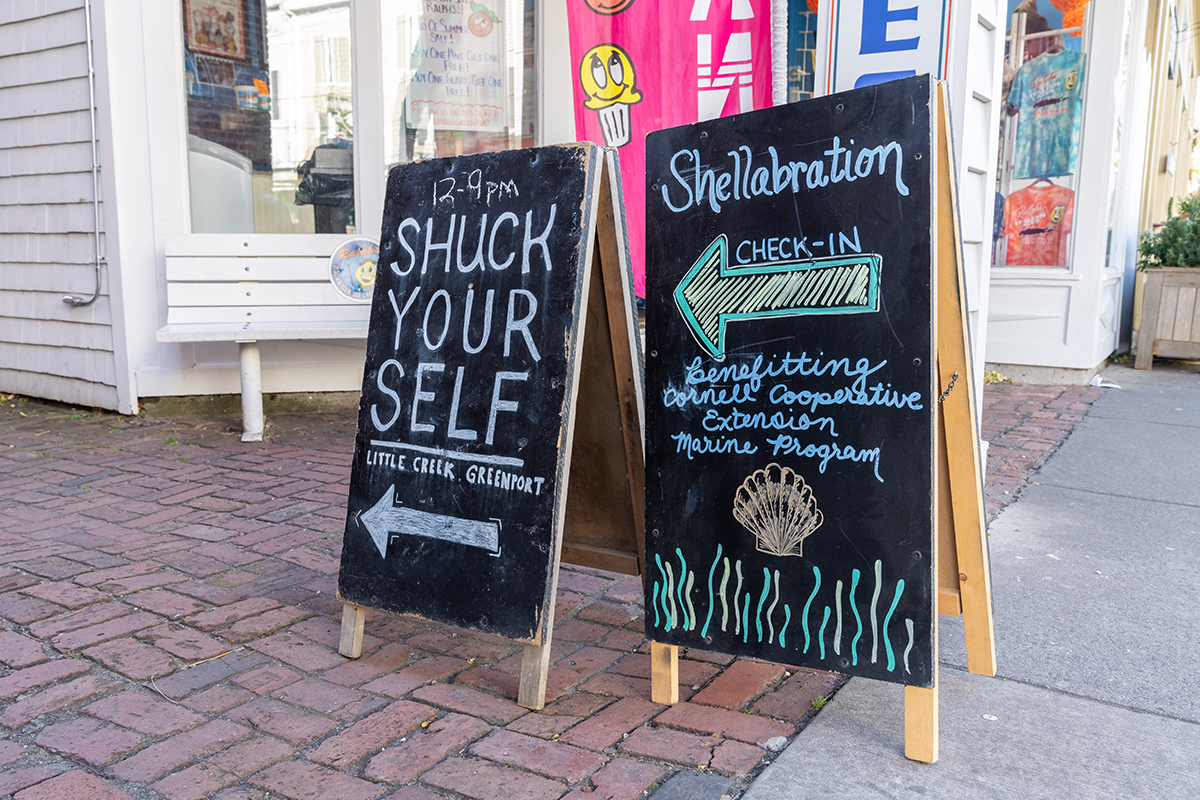 RALPH'S!!
OF SUMMER
SALE!
BUY ONE PINT GET ONE
FREE!
BUY ONE QUART GET ONE
FREE!
12-9pm
SHUCK
YOUR
SELF
LITTLE CREEK. GREENPORT
Shellabration
CHECK-IN
Benefitting
Cornell Cooperative
Extension
Marine Program